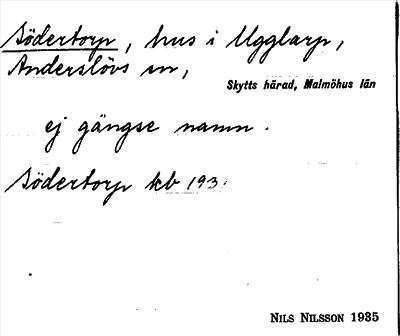 Södertorp, hus i Ugglarp,
Anderslövs sn,
Skytts härad, Malmöhus län
ej gängse namn.
Södertorp kb 193
NILS NILSSON 1935